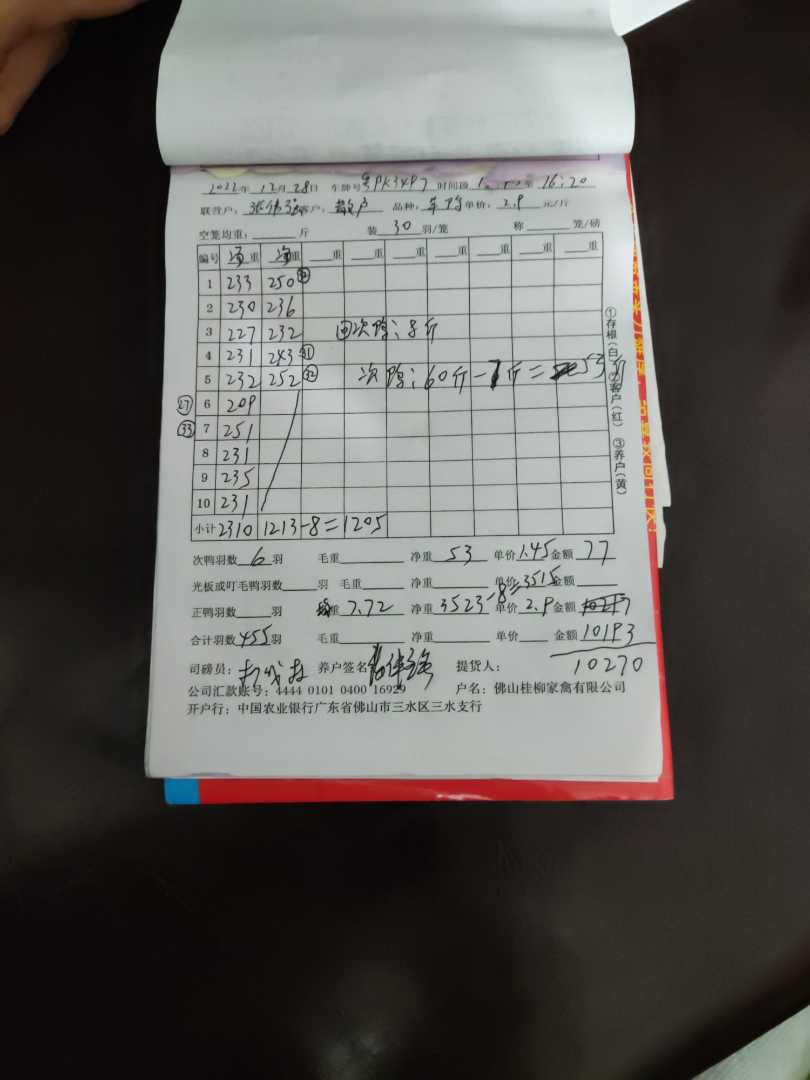 2022年12月28日 车牌号粤PK34P7 时间段 至16:20
联营户:张伟强 客户:散户 品种: 单价:2.9 元/斤
空笼均重: 斤 装30羽/笼 称 笼/磅
编号 重 重 重 重 重 重 重 重 重
1 233 250
2 230 236
3 227 232 回次鸭:8斤
4 231 243 ㉛
5 232 252 ㉜ 次鸭:60斤-7斤=53斤
㉗ 6 209
㉝ 7 251
8 231
9 235
10 231
小计 2310 1213-8=1205
次鸭羽数6羽 毛重 净重53 单价1.45 金额77
光板或叮毛鸭羽数 羽 毛重 净重 单价 金额
-8=3515
正鸭羽数 羽 重7.72 净重3523 单价2.9 金额
合计羽数455羽 毛重 净重 单价 金额10193
10270
司磅员: 养户签名 提货人:
公司汇款账号:4444 0101 0400 16929 户名:佛山桂柳家禽有限公司
开户行:中国农业银行广东省佛山市三水区三水支行
①存根(白) ②客户(红) ③养户(黄)